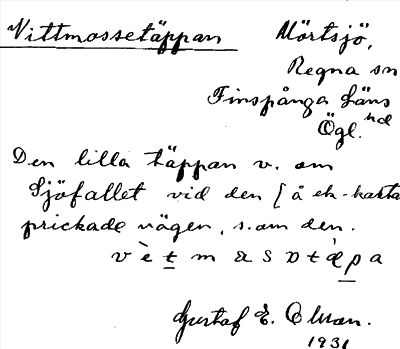 Vittmossetäppan Mörtsjö,
Regna sn
Finspånga Läns
hd
Ögl.
Den lilla täppan v. om
Sjöfallet vid den [å ek-karta
prickade vägen, s.om den.
vètmasotæ̀pa
Gustaf E.
1931